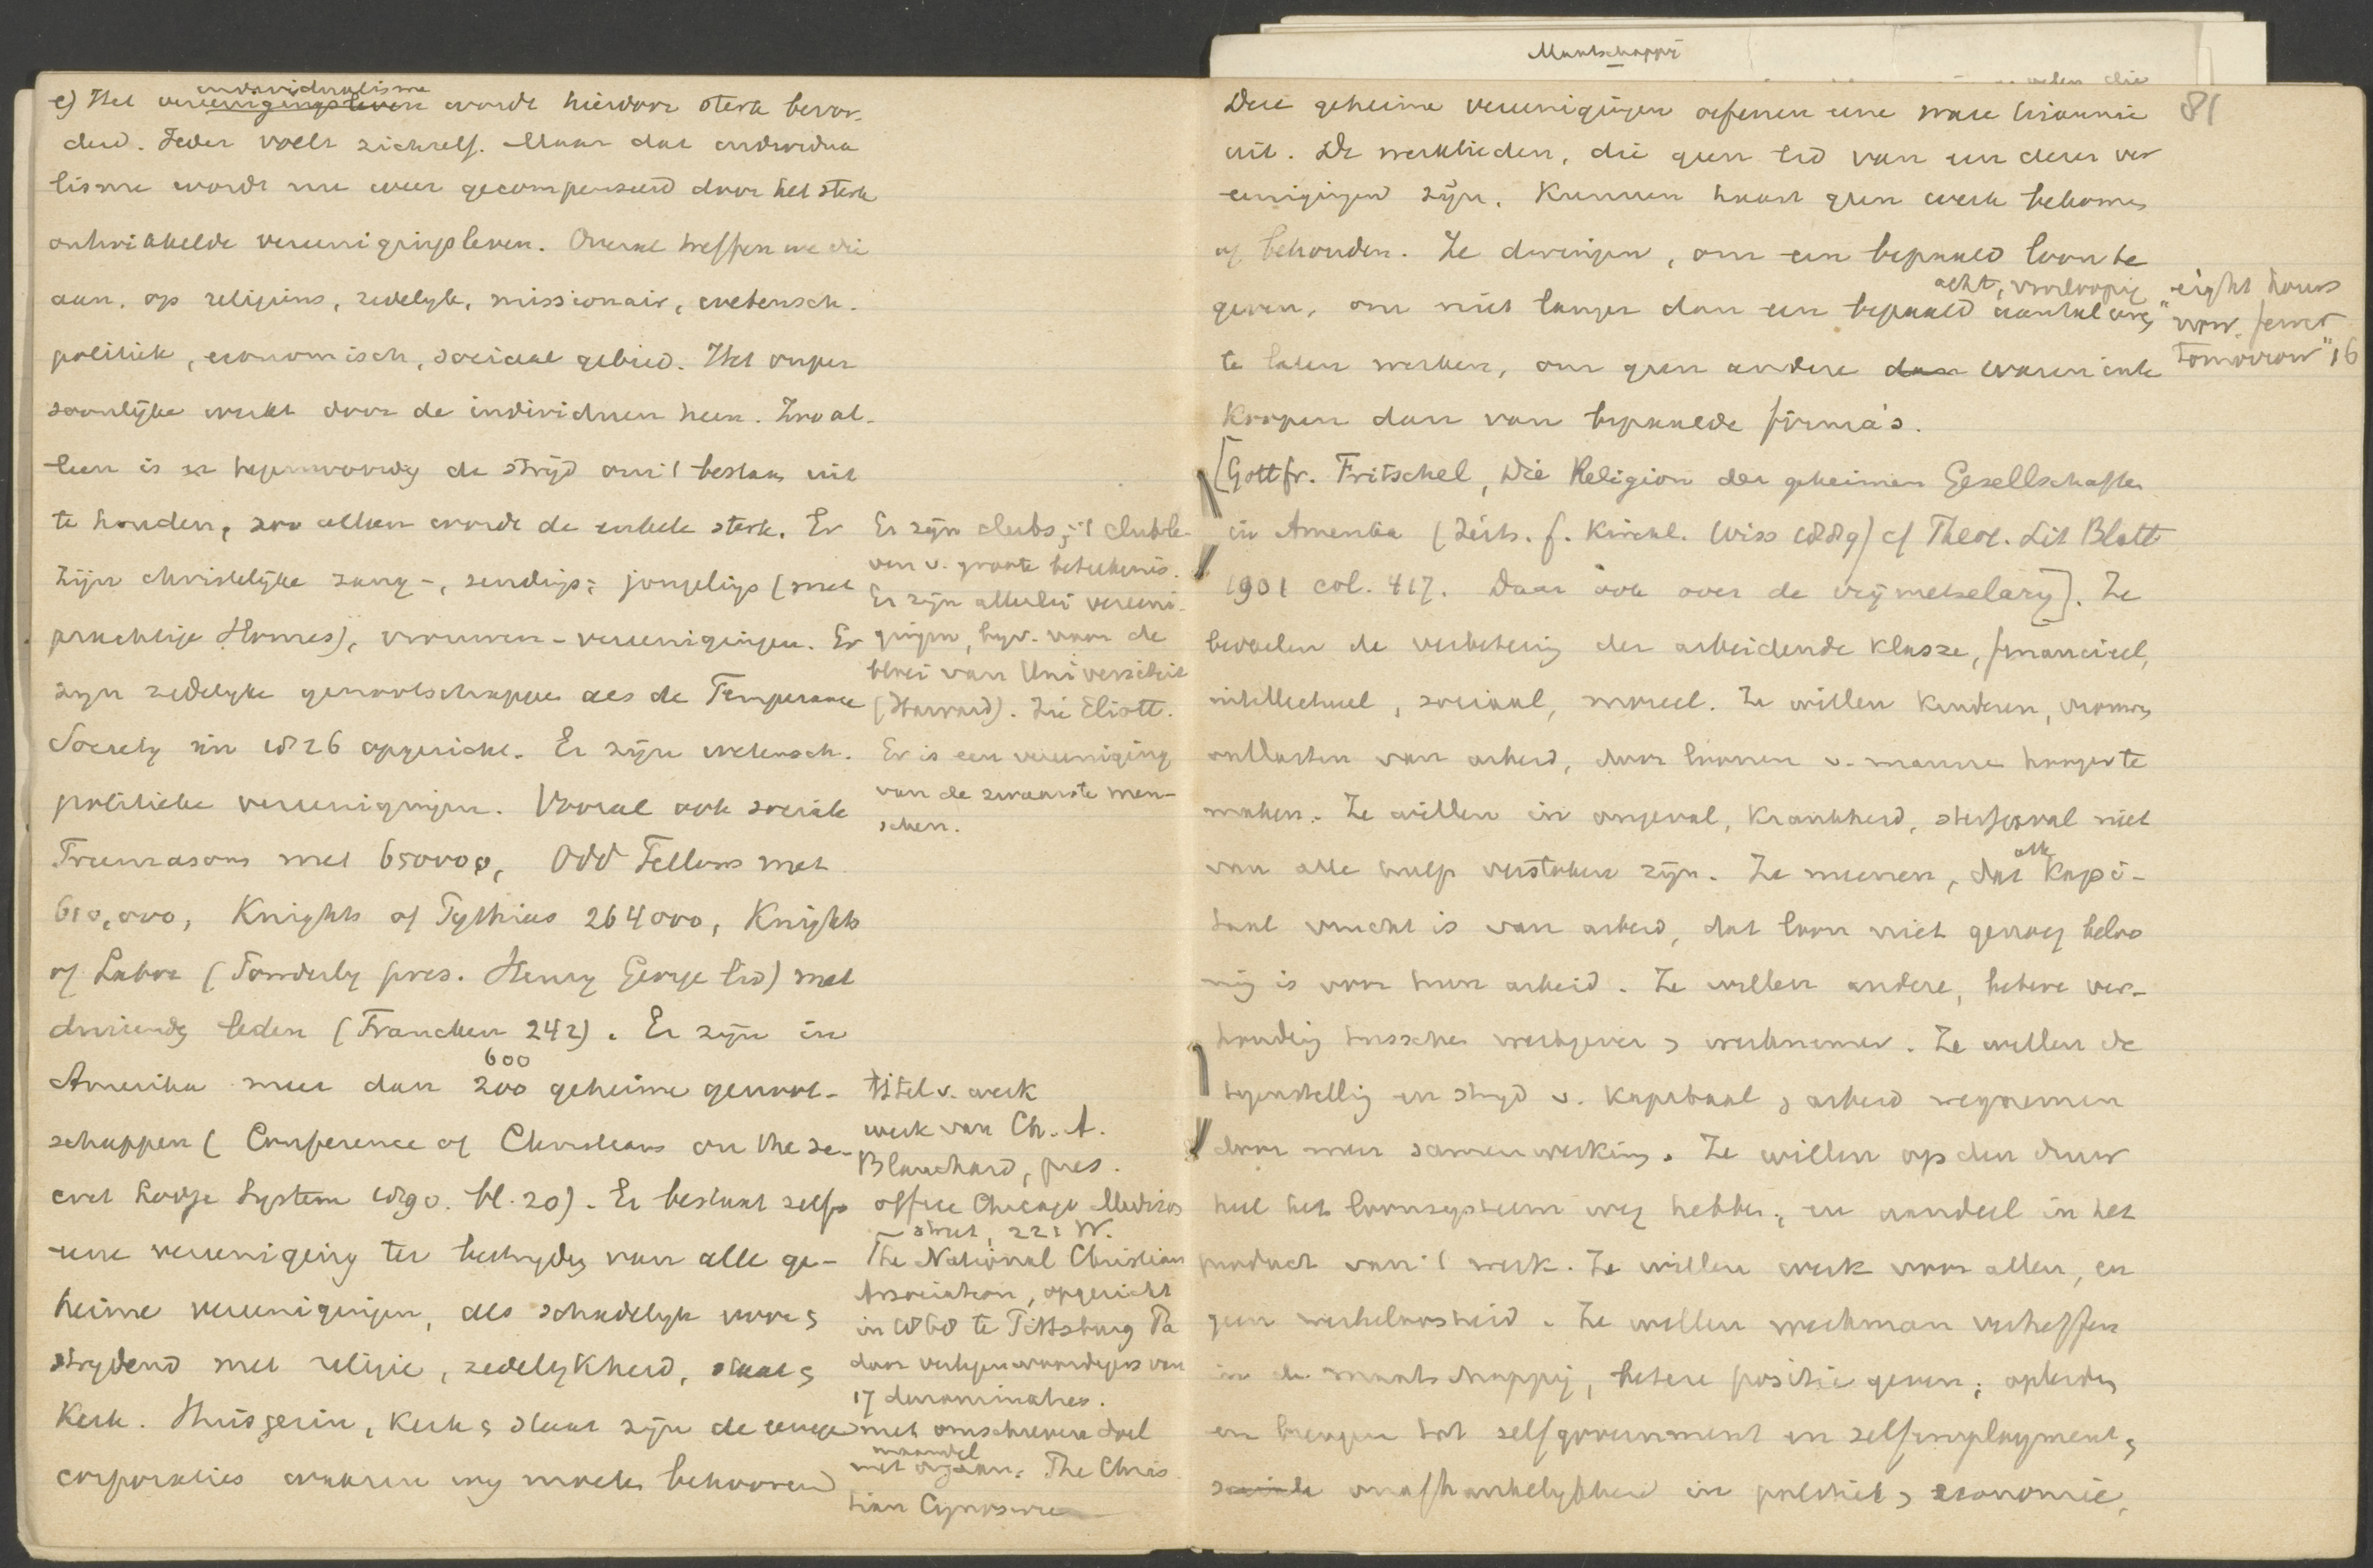 e) Het vereenigingsleven individualisme wordt hierdoor sterk bevor-
derd. Ieder voelt zichzelf. Maar dat individua
lisme wordt nu weer gecompenseerd door het sterk
ontwikkelde vereenigingsleven. Overal treffen we die
aan, op religieus, zedelijk, missionair, wetensch.
politiek, economisch, sociaal gebied. Het onper
soonlijke werkt door de individuen heen. Zoo al-
leen is er tegenwoordig de strijd om 't bestaan uit
te houden, zoo alleen wordt de enkele sterk. Er
zijn christelijke zang-, zendings-, jongelings (met
prachtige Homes), vrouwen-vereenigingen. Er
zijn zedelijke genootschappen als de Temperance
Society in 1826 opgericht. Er zijn wetensch.
politieke vereenigingen. Vooral ook sociale
Freemasons met 650000, Odd Fellows met
610,000, Knights of Pythias 264000, Knights
of Labor (Powderly pres. Henry George lid) met
duizende leden (Francken 242). Er zijn in
600
Amerika meer dan 200 geheime genoot-
schappen (Conference of Christians on the se-
cret Lodge System 1890. bl. 20). Er bestaat zelfs
eene vereeniging ter bestrijding van alle ge-
heime vereenigingen, als schadelijk voor &
strijdend met religie, zedelijkheid, staat &
Kerk. Huisgezin, Kerk & staat zijn de eenige
corporaties waartoe wij moeten behooren
Er zijn clubs; 't cluble-
ven v. groote beteekenis.
Er zijn allerlei vereeni-
gingen, bijv. voor de
bloei van Universiteit
(Harvard). Zie Eliott.
Er is een vereeniging
van de zwaarste men-
schen.
titel v. werk
werk van Ch. A.
Blanchard, pres.
office Chicago Madison
street, 221 W.
The National Christian
Association, opgericht
in 1868 te Pittsburg Pa
door vertegenwoordigers van
17 denominaties.
met omschreven doel
maandel
met orgaan: The Chris
tian Cynosure
Maatschappij
81
Deze geheime vereenigingen oefenen eene ware tirannie
uit. De werklieden, die geen lid van een dezer ver
eenigingen zijn, kunnen haast geen werk bekomen
of behouden. Ze dwingen, om een bepaald loon te
acht, voorloopig
geven, om niet langer dan een bepaald aantal uren
te laten werken, om geen andere dan waren in te
koopen dan van bepaalde firma's.
"eight hours
now, fewer
tomorrow" 16
[Gottfr. Fritschel, Die Religion der geheimen Gesellschaften
in Amerika (Zeits. f. Kirchl. Wiss 1889) cf Theol. Lit Blatt
1901 col. 417. Daar ook over de vrijmetselarij]. Ze
bedoelen de verbetering der arbeidende klasse, financieel,
intellectueel, sociaal, moreel. Ze willen kinderen, vrouwen
ontlasten van arbeid, door loonen v. mannen hooger te
maken. Ze willen in ongeval, krankheid, sterfgeval niet
van alle hulp verstoken zijn. Ze meenen, dat alle Kapi-
taal vrucht is van arbeid, dat loon niet genoeg beloo
ning is voor hun arbeid. Ze willen andere, betere ver-
houding tusschen werkgever & werknemer. Ze willen de
tegenstelling en strijd v. kapitaal & arbeid wegnemen
door meer samenwerking. Ze willen op den duur
heel het loonsysteem weg hebben, en aandeel in het
product van 't werk. Ze willen werk voor allen, en
geen werkeloosheid. Ze willen werkman verheffen
in de maatschappij, betere positie geven, opleiden
en brengen tot selfgovernment en selfemployment &
sociale onafhankelijkheid in politiek & economie,